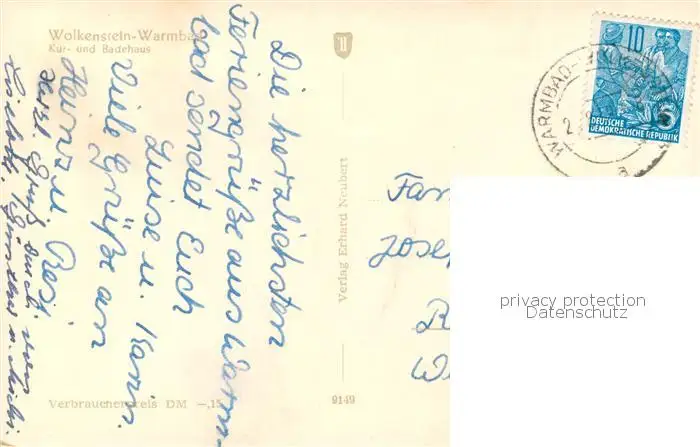 Wolkenstein-Warmbad
Kur- und Badehaus
Die herzlichsten
Feriengrüße aus Warm-
bad sendet Euch
Luise u. Karin.
Viele Grüße an
Heinz u. Resi
Herzl. Gruß auch von
Verlag Erhard Neubert
Verbraucherpreis DM —,15
9149
10
DEUTSCHE
DEMOKRATISCHE REPUBLIK
WARMBAD
2
a
Fam
Josef
privacy protection
Datenschutz